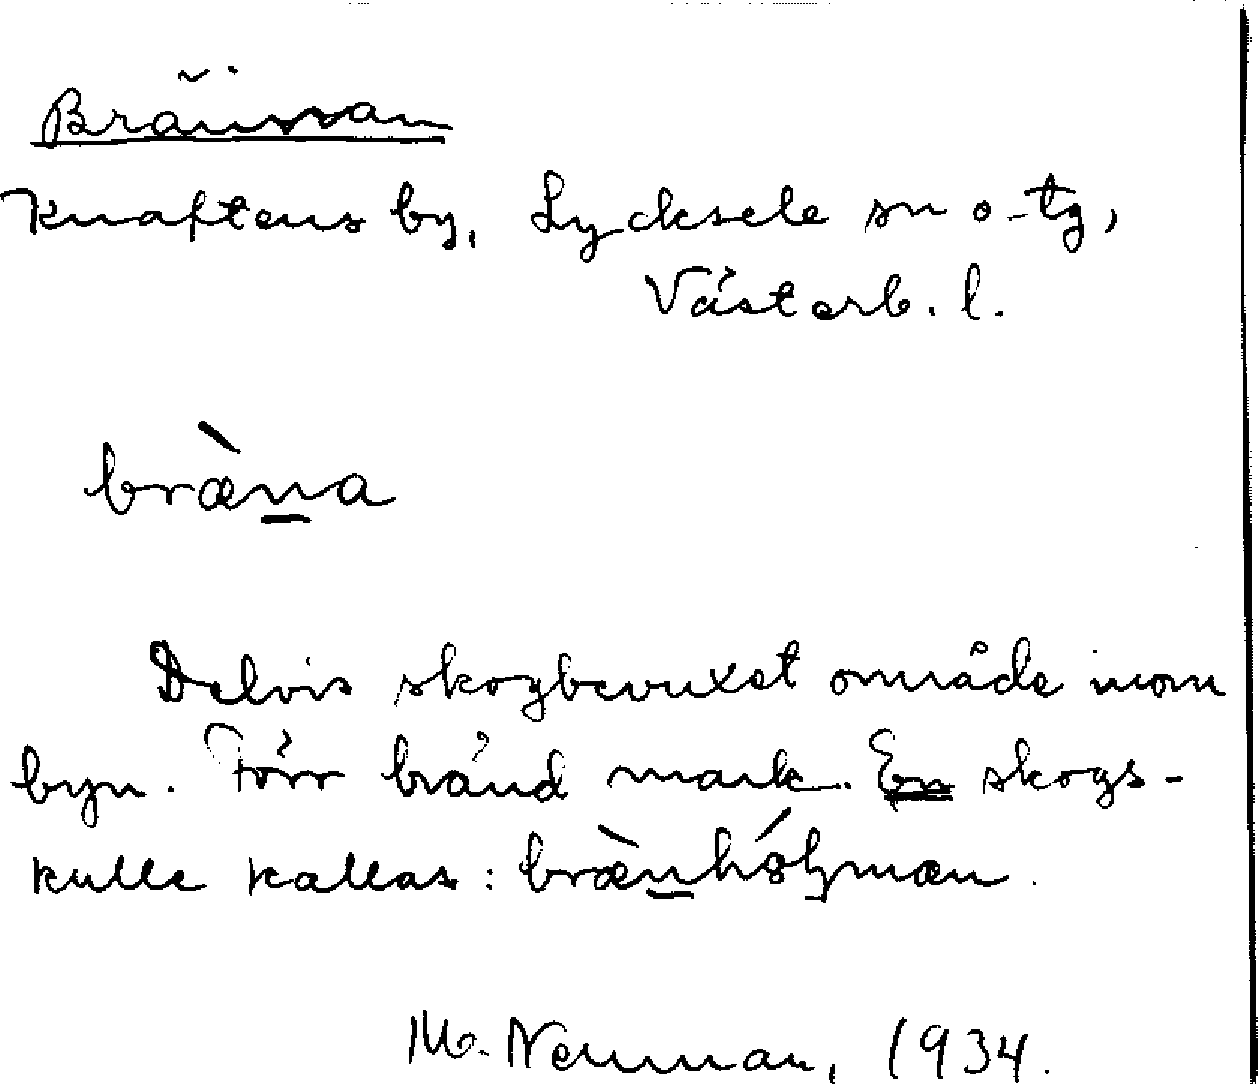 Brännan
Knaftens by, Lycksele sn o. tg,
Västerb. l.
bræ̀n̲a
Delvis skogbevuxet område inom
byn. Förr bränd mark. En skogs-
kulle kallas: bræ̀n̲hólman.
M. Neuman, 1934.